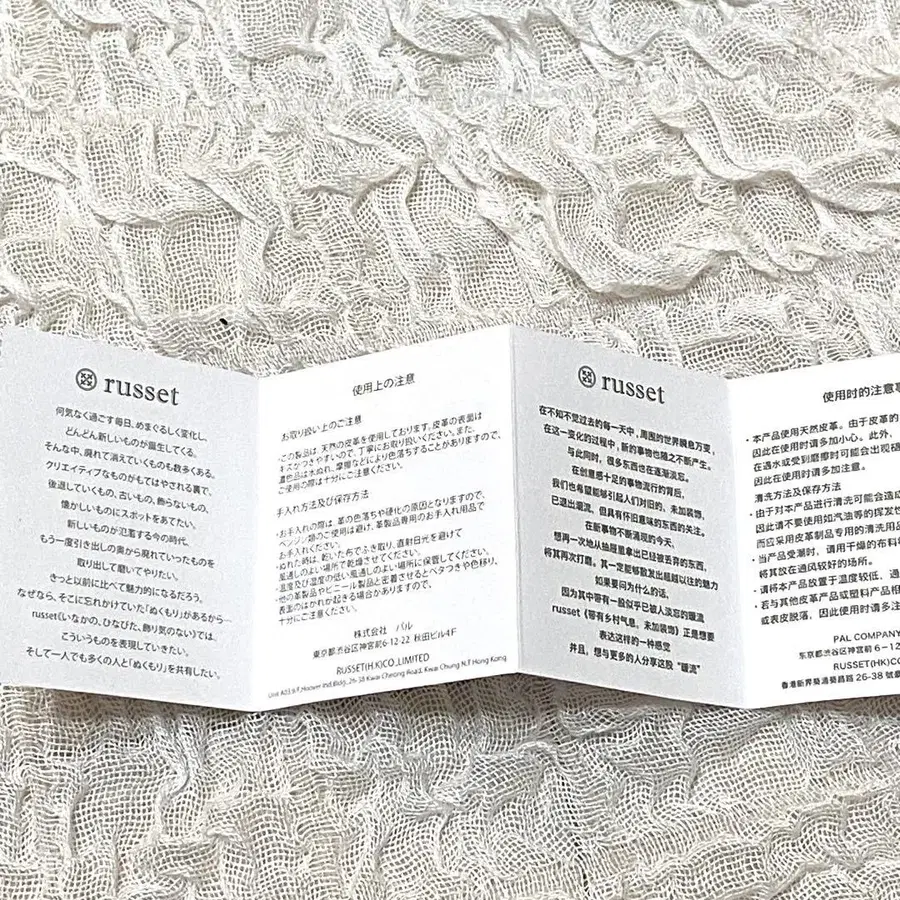 russet
何気なく過ごす毎日、めまぐるしく変化し、
どんどん新しいものが誕生してくる。
そんな中、廃れて消えていくものも数多くある。
クリエイティブなものがもてはやされる裏で、
後退していくもの、古いもの、飾らないもの、
懐かしいものにスポットをあてたい。
新しいものが氾濫する今の時代、
もう一度引き出しの奥から廃れていったものを
取り出して磨いてやりたい。
きっと以前に比べて魅力的になるだろう。
なぜなら、そこに忘れかけていた「ぬくもり」があるから…
russet(いなかの、ひなびた、飾り気のない)では、
こういうものを表現していきたい。
そして一人でも多くの人と「ぬくもり」を共有したい。
使用上の注意
お取り扱い上のご注意
・この製品は、天然の皮革を使用しております。皮革の表面は
キズがつきやすいので、丁寧にお取り扱いください。また、
濃色品は水ぬれ、摩擦などにより色落ちすることがありますので、
ご使用の際は十分にご注意ください。
手入れ方法及び保存方法
・お手入れの際は、革の色落ちや硬化の原因となりますので、
ベンジン類のご使用は避け、革製品専用のお手入れ用品で
お手入れください。
・ぬれた時は、乾いた布でふき取り、直射日光を避けて
風通しのよい場所で乾燥させてください。
・温度及び湿度の低い風通しのよい場所に保管してください。
・他の革製品やビニール製品と密着させるとベタつきや色移り、
表面のはがれが起きる場合がありますので、
十分にご注意ください。
株式会社 パル
東京都渋谷区神宮前6-12-22 秋田ビル4F
RUSSET(H.K)CO.,LIMITED
Unit A03,9 F,Hoover Ind.Bldg.,26-38 Kwai Cheong Road, Kwai Chung N.T Hong Kong
russet
在不知不觉过去的每一天中，周围的世界瞬息万变，
在这一变化的过程中，新的事物也随之不断产生。
与此同时，很多东西也在逐渐淡忘。
在创意感十足的事物流行的背后，
我们也希望能够引起人们对旧的、未加装饰、
已退出潮流、但具有怀旧意味的东西的关注。
在新事物不断涌现的今天，
想再一次地从抽屉里拿出已经被丢弃的东西，
将其再次打磨。其一定能够散发出超越以往的魅力
如果要问为什么的话，
因为其中带有一股似乎已被人淡忘的暖流
russet《带有乡村气息，未加装饰》正是想要
表达这样的一种感觉
并且，想与更多的人分享这股“暖流”
使用时的注意事
・本产品使用天然皮革。由于皮革的
因此在使用时请多加小心。此外，
在遇水或受到磨擦时可能会出现褪
因此在使用时请多加注意。
清洗方法及保存方法
・由于对本产品进行清洗可能会造成
因此请不要使用如汽油等的挥发性
而应采用皮革制品专用的清洗用品
・当产品受潮时，请用干燥的布料
将其放在通风较好的场所。
・请将本产品放置于温度较低、通
・若与其他皮革产品或塑料产品相
或表皮脱落，因此使用时请多注
PAL COMPANY
东京都渋谷区神宫前 6－12
RUSSET(HK)CO
香港新界葵涌葵昌路 26-38 號